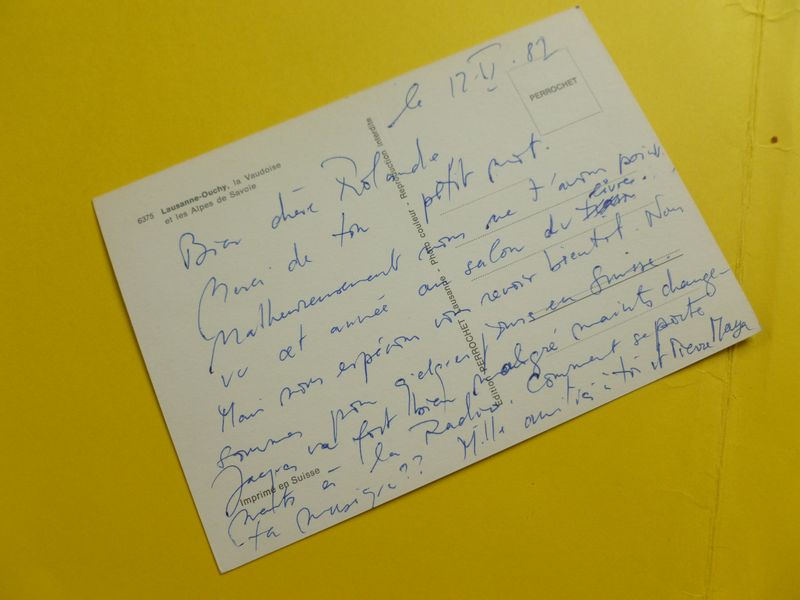 6375 Lausanne-Ouchy, la Vaudoise
et les Alpes de Savoie
le 12.VI.82
PERROCHET
Bien chère Rolande
Merci de ton petit mot.
Malheureusement nous ne t'avons point
vu cet année au salon du livre...
Mais nous espérons vous revoir bientôt. Nous
sommes pour quelques jours en Suisse.
Jacques va fort bien malgré maints change-
ments à la Radio. Comment se porte
ta musique?? Mille amitiés à toi et Pierre Maya
Edition PERROCHET Lausanne - Photo couleur - Reproduction interdite
Imprimé en Suisse